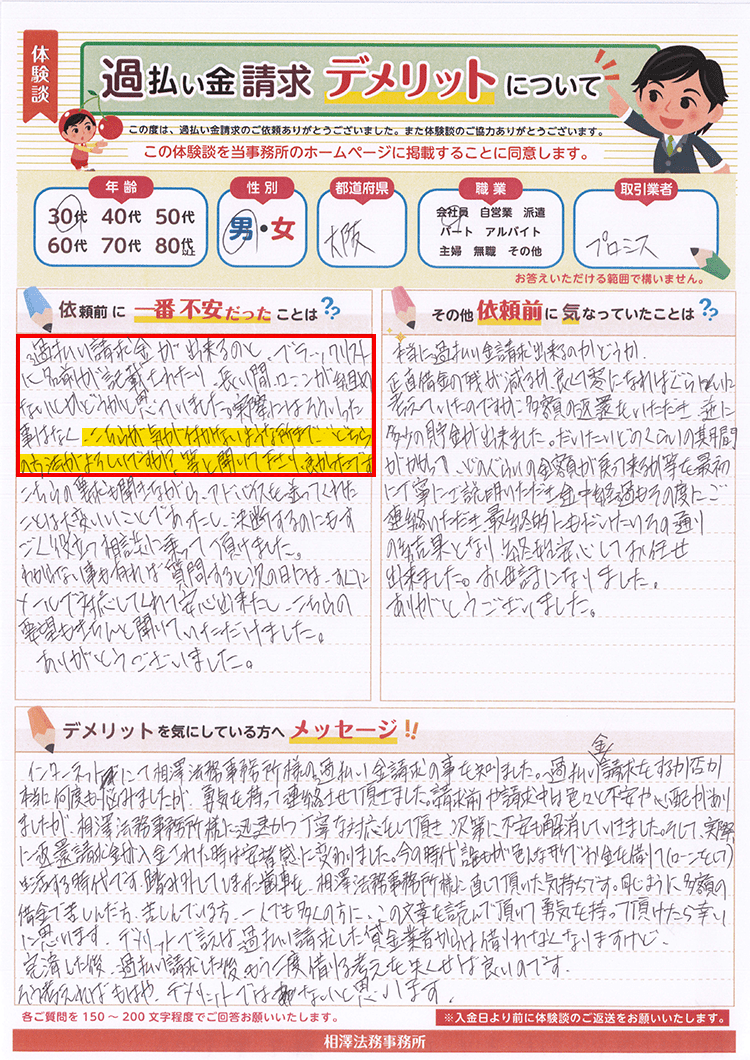 体験談
過払い金請求 デメリットについて
この度は、過払い金請求のご依頼ありがとうございました。また体験談のご協力ありがとうございます。
この体験談を当事務所のホームページに掲載することに同意します。
年齢
30代 40代 50代
60代 70代 80代以上
性別
男・女
都道府県
大阪
職業
会社員 自営業 派遣
パート アルバイト
主婦 無職 その他
取引業者
プロミス
お答えいただける範囲で構いません。
依頼前に一番不安だったことは??
過払い請求金が出来るのと、ブラックリスト
に名前が記載されたり、長い間、ローンが組め
ないしかどうかし思っていました。実際にはそういった
事はなく、こちらが気が付かないような所まで、どちら
の方法がよろしいですか?等と聞いて下さり、良かったです
こちらの要求も聞きながら、アドバイスを送ってくれた
ことは大変いいことであったし、決断するのにもす
ごく役立つ相談に乗って頂けました。
わからない事も有れば質問すると次の日には、すぐに
メールで対応してくれて安心出来たし、こちらの
要望もきちんと聞いていただけました。
ありがとうございました。
その他依頼前に気なっていたことは??
本当に過払い金請求出来るのかどうか、
正直借金の残が減るか、良くて零になればぐらいに
考えていたのですが、多額の返還をいただき、逆に
多少の貯金が出来ました。だいたいどのくらいの期間
がかかって、どのぐらいの金額が戻って来るか等を最初
に丁寧にご説明いただき、途中経過もその度にご
連絡いただき、最終的にもだいたいその通り
の結果となり、終始安心してお任せ
出来ました。お世話になりました。
ありがとうございました。
デメリットを気にしている方へメッセージ!!
インターネットにて相澤法務事務所様の過払い金請求の事を知りました。過払い金請求をするか否か
本当に何度も悩みましたが、勇気を持って連絡させて頂きました。請求前や請求中は色々と不安や心配があり
ましたが、相澤法務事務所様に迅速かつ丁寧な対応をして頂き、次第に不安も解消していきました。そして、実際
に返還請求金が入金された時は安堵感に変わりました。今の時代、誰もが色んな形でお金を借りて(ローンとして)
生活する時代です。踏み外していました歯車を、相澤法務事務所様に直して頂いた気持ちです。同じように多額の
借金で苦しんだ方、苦しんでいる方、一人でも多くの方に、この文章を読んで頂いて勇気を持って頂けたら幸い
に思います。デメリットで言えば過払い請求した貸金業者からは借りれなくなりますけど、
完済した後、過払い請求した後、もう一度借りる考えを失くせば良いのです。
そう考えればもはや、デメリットではないと思います。
各ご質問を150~200文字程度でご回答お願いいたします。
※入金日より前に体験談のご返送をお願いいたします。
相澤法務事務所